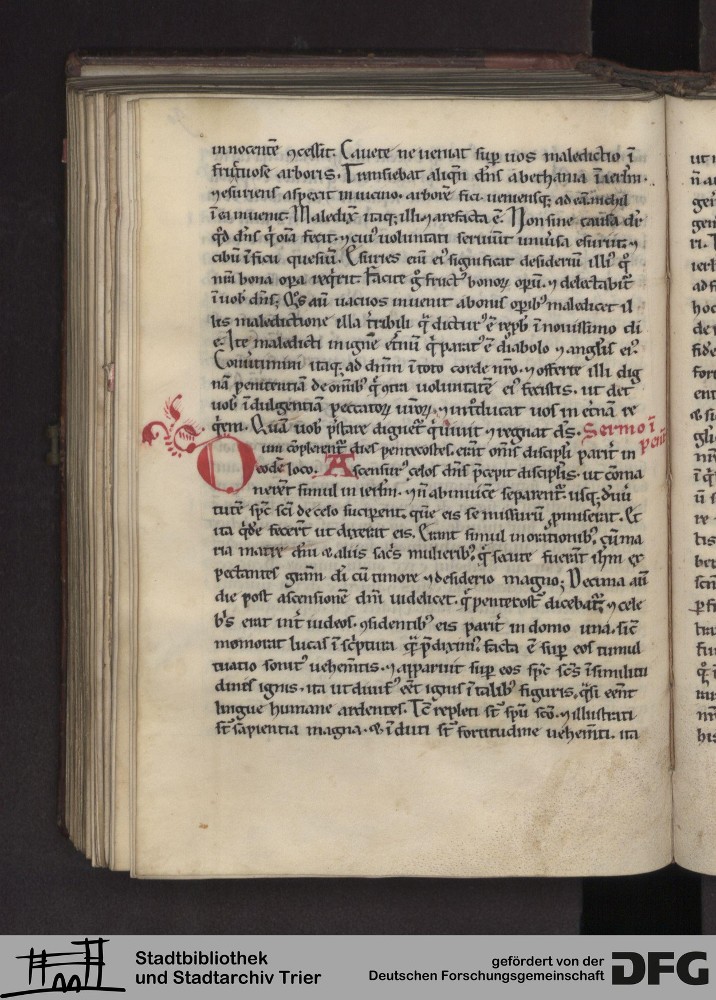 innocentē ⁊cessit. Cauete ne ueniat sup uos maledictio ī
fructuose arboris. Transiebat aliqn̄ dn̄s a bethania ī ierl̄m.
⁊ esuriens aspexit in uicino arborē fici. ueniensq; ad eā nichil
ī ea inuenit. Maledix̄ itaq; illi ⁊ arefacta ē. Non sine causa dr̄
qd̄ dn̄s q̄ oīa fecit. ⁊ cui᾽ uoluntati seruiūt uniūsa esuriit. ⁊
cibū ī ficu quesiuit. Esuries eni ei᾽ significat desideriū illi᾽ q̄
nr̄a bona opa reqͥrit. Facite ḡ fruct᾽ bonoꝝ opūm. ⁊ delectabit᾽
ī uob dn̄s. Q̄s aū uacuos inuenit a bonis opib᾽ maledicet il
lis maledictione illa tͥribili q̄ dictur᾽ ē repb ī nouissimo di
e. Ite maledicti in ignē et̄nū qͥ parat᾽ ē diabolo ⁊ angl̄is ei᾽.
Conu̅timini itaq; ad dn̄m ī toto corde nr̄o. ⁊ offerte illi dig
nā penitentiā de om̄ib᾽ q̄ ꝯtra uoluntatē ei᾽ fecistis. ut det
uob ī dulgentiā peccatoꝝ ur̄oꝝ. ⁊ int̄ducat uos in et̄nā re
qͥem. Quā uob p̄stare dignet᾽ qͥ uiuit ⁊ regnat ds̄. Sermo ī
pent̄
Cum cōplerent᾽ dies pentecostes. erāt om̄s discipli parit̄ in
eodē loco. Ascensur᾽ celos dn̄s p̄cepit disciplis. ut cōma
nerēt simul in ierl̄m. ⁊ n̄ ab inuicē separent᾽. usq; dū uͥr
tutē sp̄c sc̄i de celo suscipent. quē eis se missurū pmiserat. Et
ita qͥde fecerūt ut dixerat eis. Erant simul in orationib᾽. cū ma
ria matre dn̄i ⁊ aliis sac̄s mulierib᾽. q̄ secute fuerāt ih̄m ex
pectantes grām dī cū timore ⁊ desiderio magno; Decima aū
die post ascensionē dn̄i uidelicet. q̄ penterost᾽ dicebat᾽. ⁊ cele
b̄s erat int̄ iudeos. ꝯsidentib᾽ eis parit̄ in domo una. sic̄
memorat lucas ī sc̄ptura q̄ p̄dixim᾽. facta ē sup eos tumul
tuatio sonit᾽ uehem̄tis. ⁊ apparuit sup eos sp̄c sc̄s ī similitu
dines ignis. ita ut diuis᾽ eēt ignis ī talib᾽ figuris. q̄si eēnt
lingue humane ardentes. Tc̄ repleti st̄ sp̄u sc̄o. ⁊ illustrati
st̄ sapientia magna. ⁊ īduti st̄ fortitudine uehem̄ti. ita
Stadtbibliothek
und Stadtarchiv Trier
gefördert von der
Deutschen Forschungsgemeinschaft
DFG